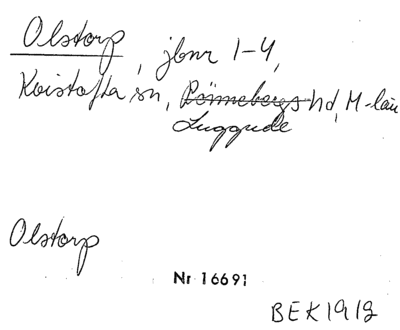 Olstorp, jbnr 1-4,
Kvistofta sn, Rönnebergs hd, M-län
Luggude
Olstorp
Nr 16691
BEK 1912